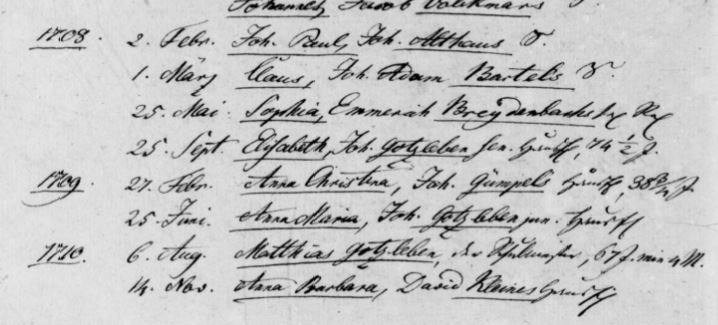 Johannes Jacob Volckmars
1708. 2. Febr. Joh. Paul, Joh. Althaus S.
1. März Claus, Joh. Adam Bartels S.
25. Mai. Sophia, Emmerich Breydenbachs
25. Sept. Elisabeth, Joh. Gotzleben sen. Hausfr, 74 1/2 J.
1709. 27. Febr. Anna Christina, Joh. Gümpels Hausfr, 38 3/4 J.
25. Juni. Anna Maria, Joh. Gotzleben jun. Hausfr
1710. 6. Aug. Matthias Gotzleben, der Schulmeister, 67 J. min 4 M.
14. Nov. Anna Barbara, David Kleines Hausfr